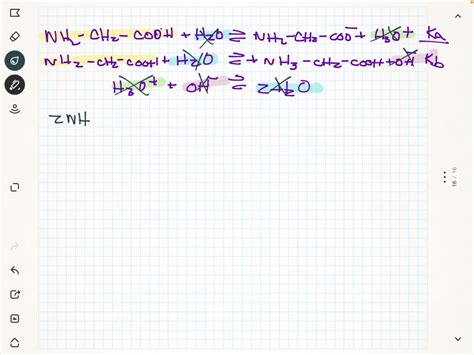 NH2 - CH2 - COOH + H2O ⇌ NH2 - CH2 - COO⁻ + H3O⁺ Ka
NH2 - CH2 - COOH + H2O ⇌ + NH3 - CH2 - COOH + OH⁻ Kb
H3O⁺ + OH⁻ ⇌ 2H2O
2NH
16 / 16